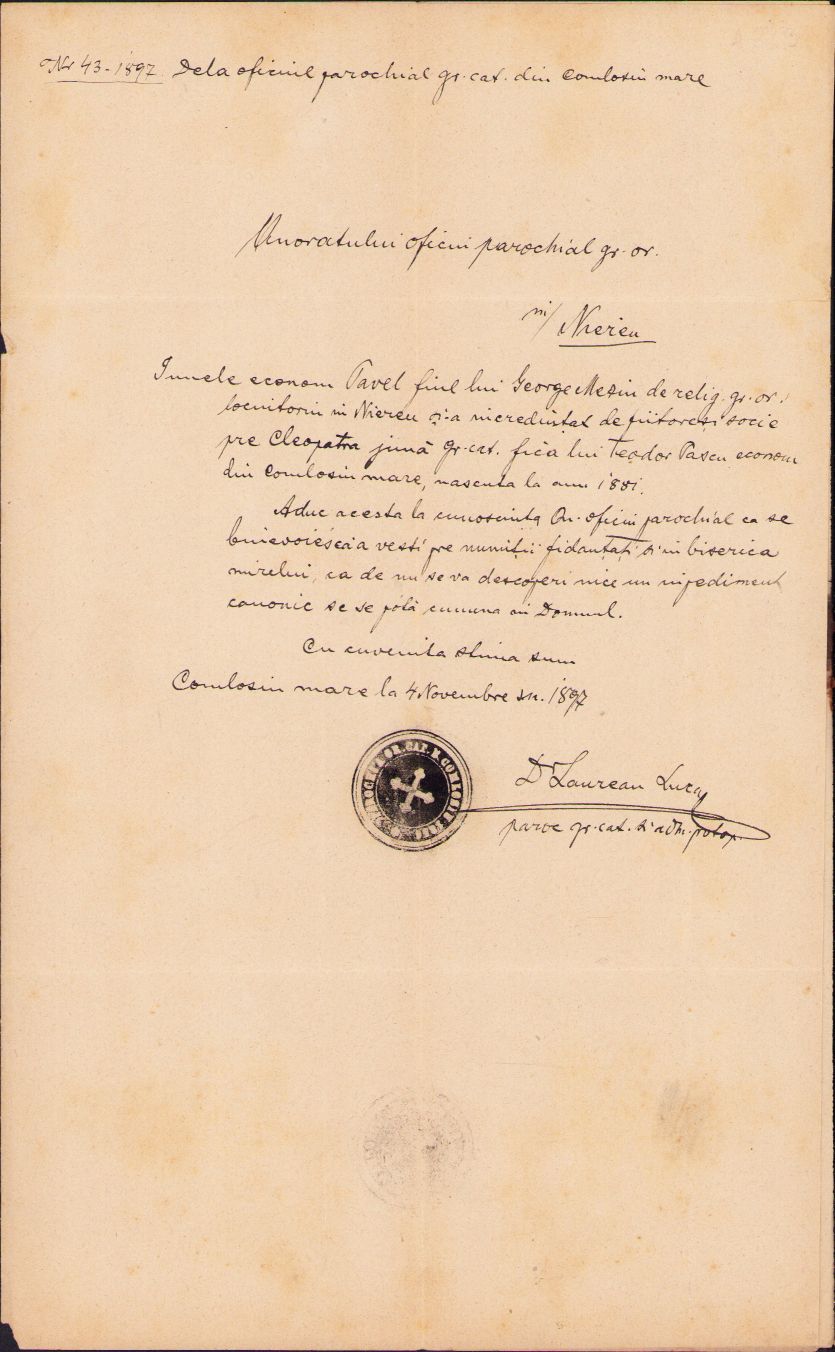 Nr 43-1897. Dela oficiul parochial gr. cat. din Comlosiu mare
Onoratului oficiu parochial gr. or.
in/ Niereu
Junele econom Pavel fiul lui George Mesin de relig. gr. or.
locuitoriu in Niereu și-a incredintat de fiitore și socie
pre Cleopatra jună gr. cat. fica lui Teodor Pascu econom
din Comlosiu mare, nascuta la anu 1881.
Aduc acesta la cunoscinta On. oficiu parochial ca se
binevoiésca a vesti pre numiții fidantați si in biserica
mirelui, ca de nu se va descoperi nice un inpediment
canonic se se pótă cununa in Domnul.
Cu cuvenita stima sum
Comlosiu mare la 4 Novembre sn. 1897
GR. CAT. COMLOSIU
D Laurean Luca
paroc gr. cat. si adm. protop.